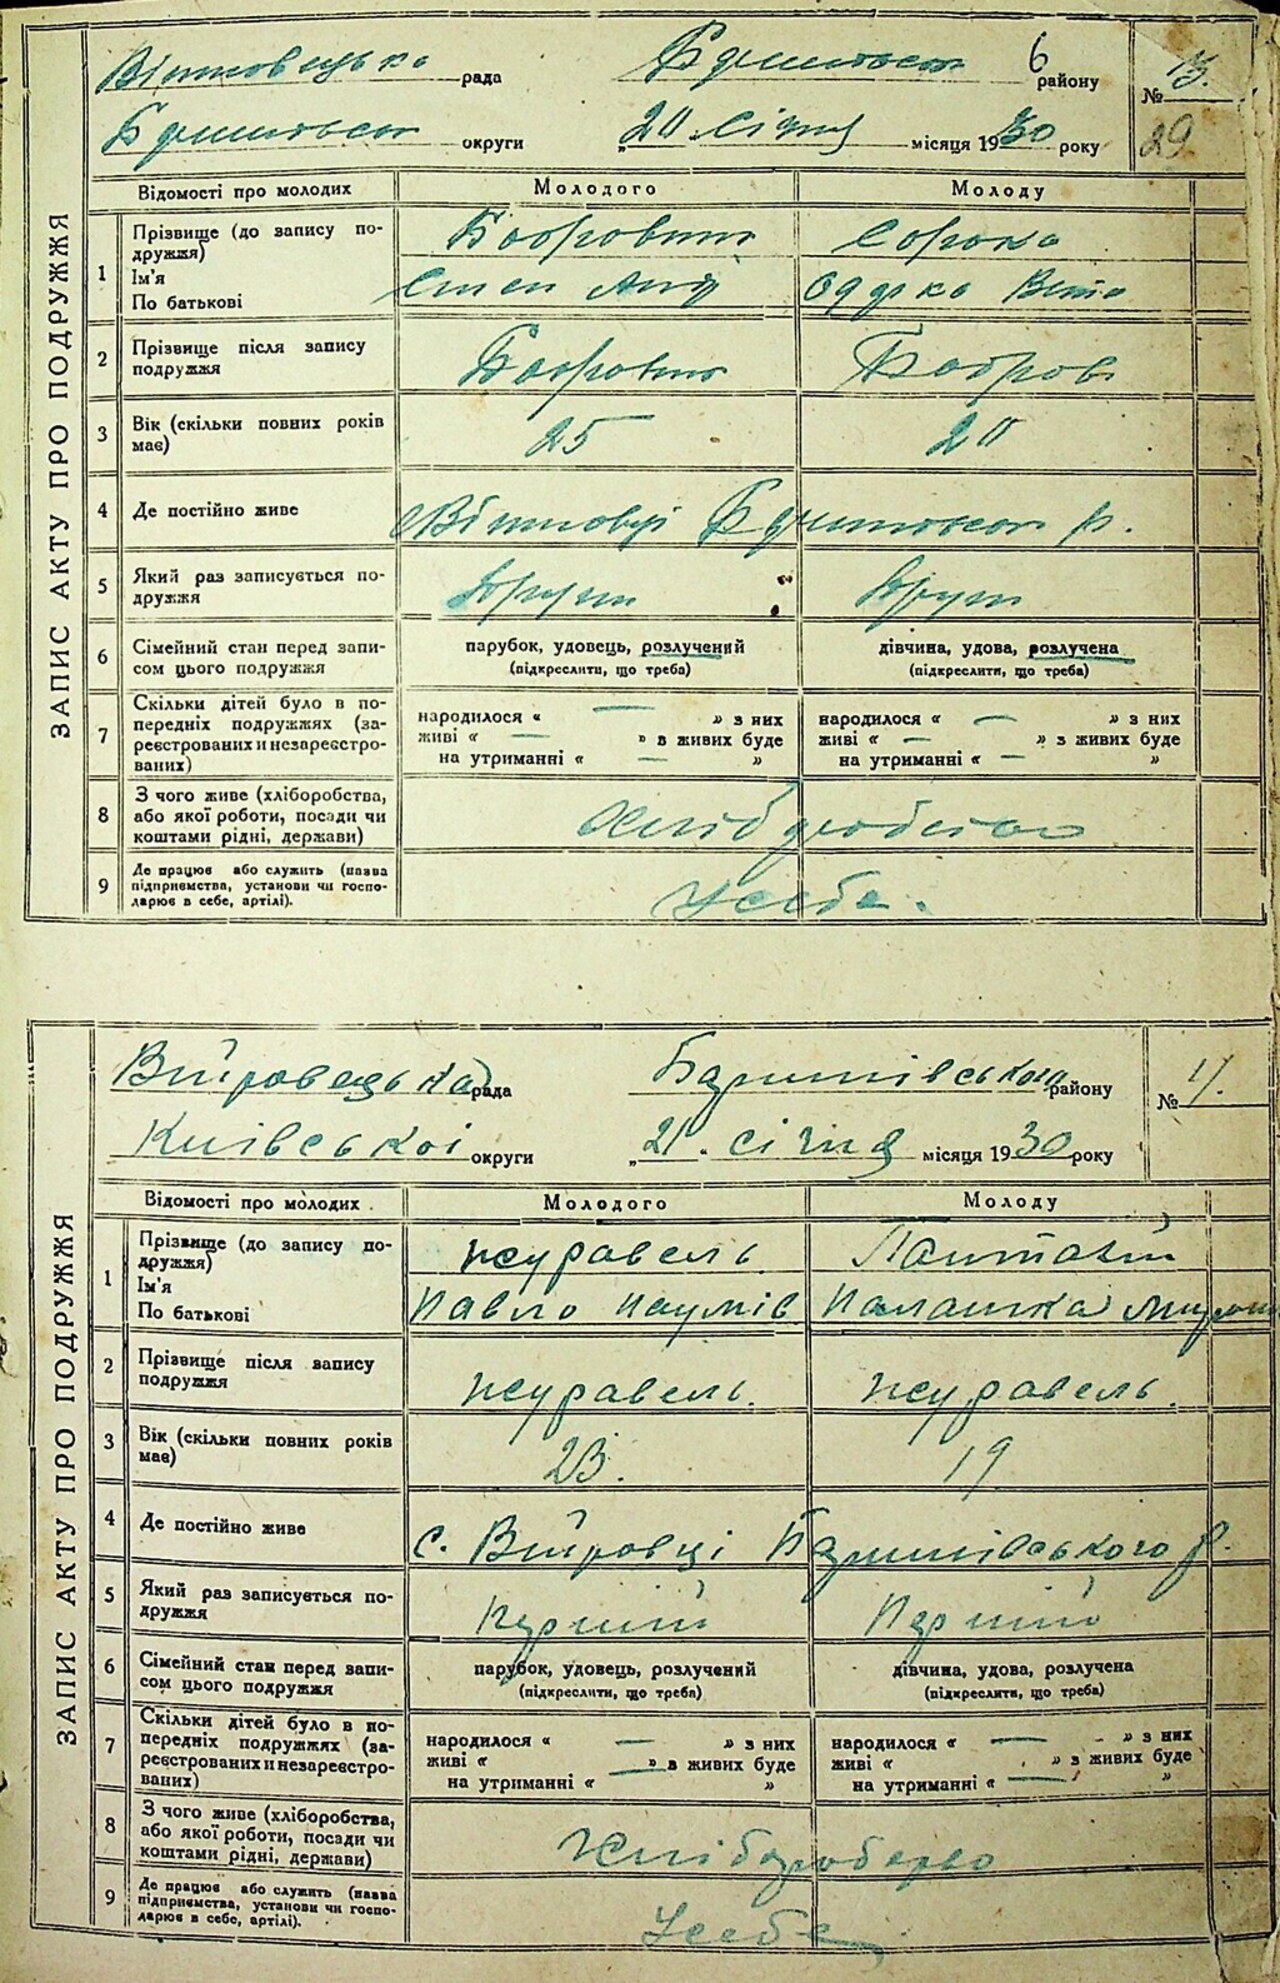 рада 6 району № 13.
округи „20 Січня місяця 1930 року 29
ЗАПИС АКТУ ПРО ПОДРУЖЖЯ
Відомості про молодих Молодого Молоду
1 Прізвище (до запису по-
дружжя) Сорока
Ім'я
По батькові
2 Прізвище після запису
подружжя
3 Вік (скільки повних років 25 20
має)
4 Де постійно живе р.
5 Який раз записується по-
дружжя
6 Сімейний стан перед запи- парубок, удовець, розлучений дівчина, удова, розлучена
сом цього подружжя (підкреслити, що треба) (підкреслити, що треба)
7 Скільки дітей було в по-
передніх подружжях (за- народилося « — » з них народилося « — » з них
реєстрованих и незареєстро- живі « — » в живих буде живі « — » з живих буде
ваних) на утриманні « — » на утриманні « — »
8 З чого живе (хліборобства,
або якої роботи, посади чи
коштами рідні, держави)
9 Де працює або служить (назва
підприємства, установи чи госпо- У себе.
дарює в себе, артілі).
рада Баришівського району № 17.
Київської округи „21. січня місяця 1930 року
ЗАПИС АКТУ ПРО ПОДРУЖЖЯ
Відомості про молодих Молодого Молоду
1 Прізвище (до запису по- Журавель
дружжя)
Ім'я Павло Наумів Палашка
По батькові
2 Прізвище після запису Журавель. Журавель.
подружжя
3 Вік (скільки повних років 23. 19
має)
4 Де постійно живе с. Баришівського р.
5 Який раз записується по- Перший Перший
дружжя
6 Сімейний стан перед запи- парубок, удовець, розлучений дівчина, удова, розлучена
сом цього подружжя (підкреслити, що треба) (підкреслити, що треба)
7 Скільки дітей було в по-
передніх подружжях (за- народилося « — » з них народилося « — » з них
реєстрованих и незареєстро- живі « » в живих буде живі « » з живих буде
ваних) на утриманні « » на утриманні « — »
8 З чого живе (хліборобства,
або якої роботи, посади чи
коштами рідні, держави)
9 Де працює або служить (назва
підприємства, установи чи госпо- У себе
дарює в себе, артілі).